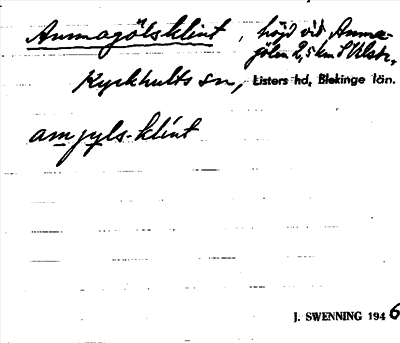 Annagölsklint, höjd vid Anna-
gölen 2,5 km S Vilsh.,
Kyrkhults sn, Listers hd, Blekinge län.
amjyls-klint
J. SWENNING 1946